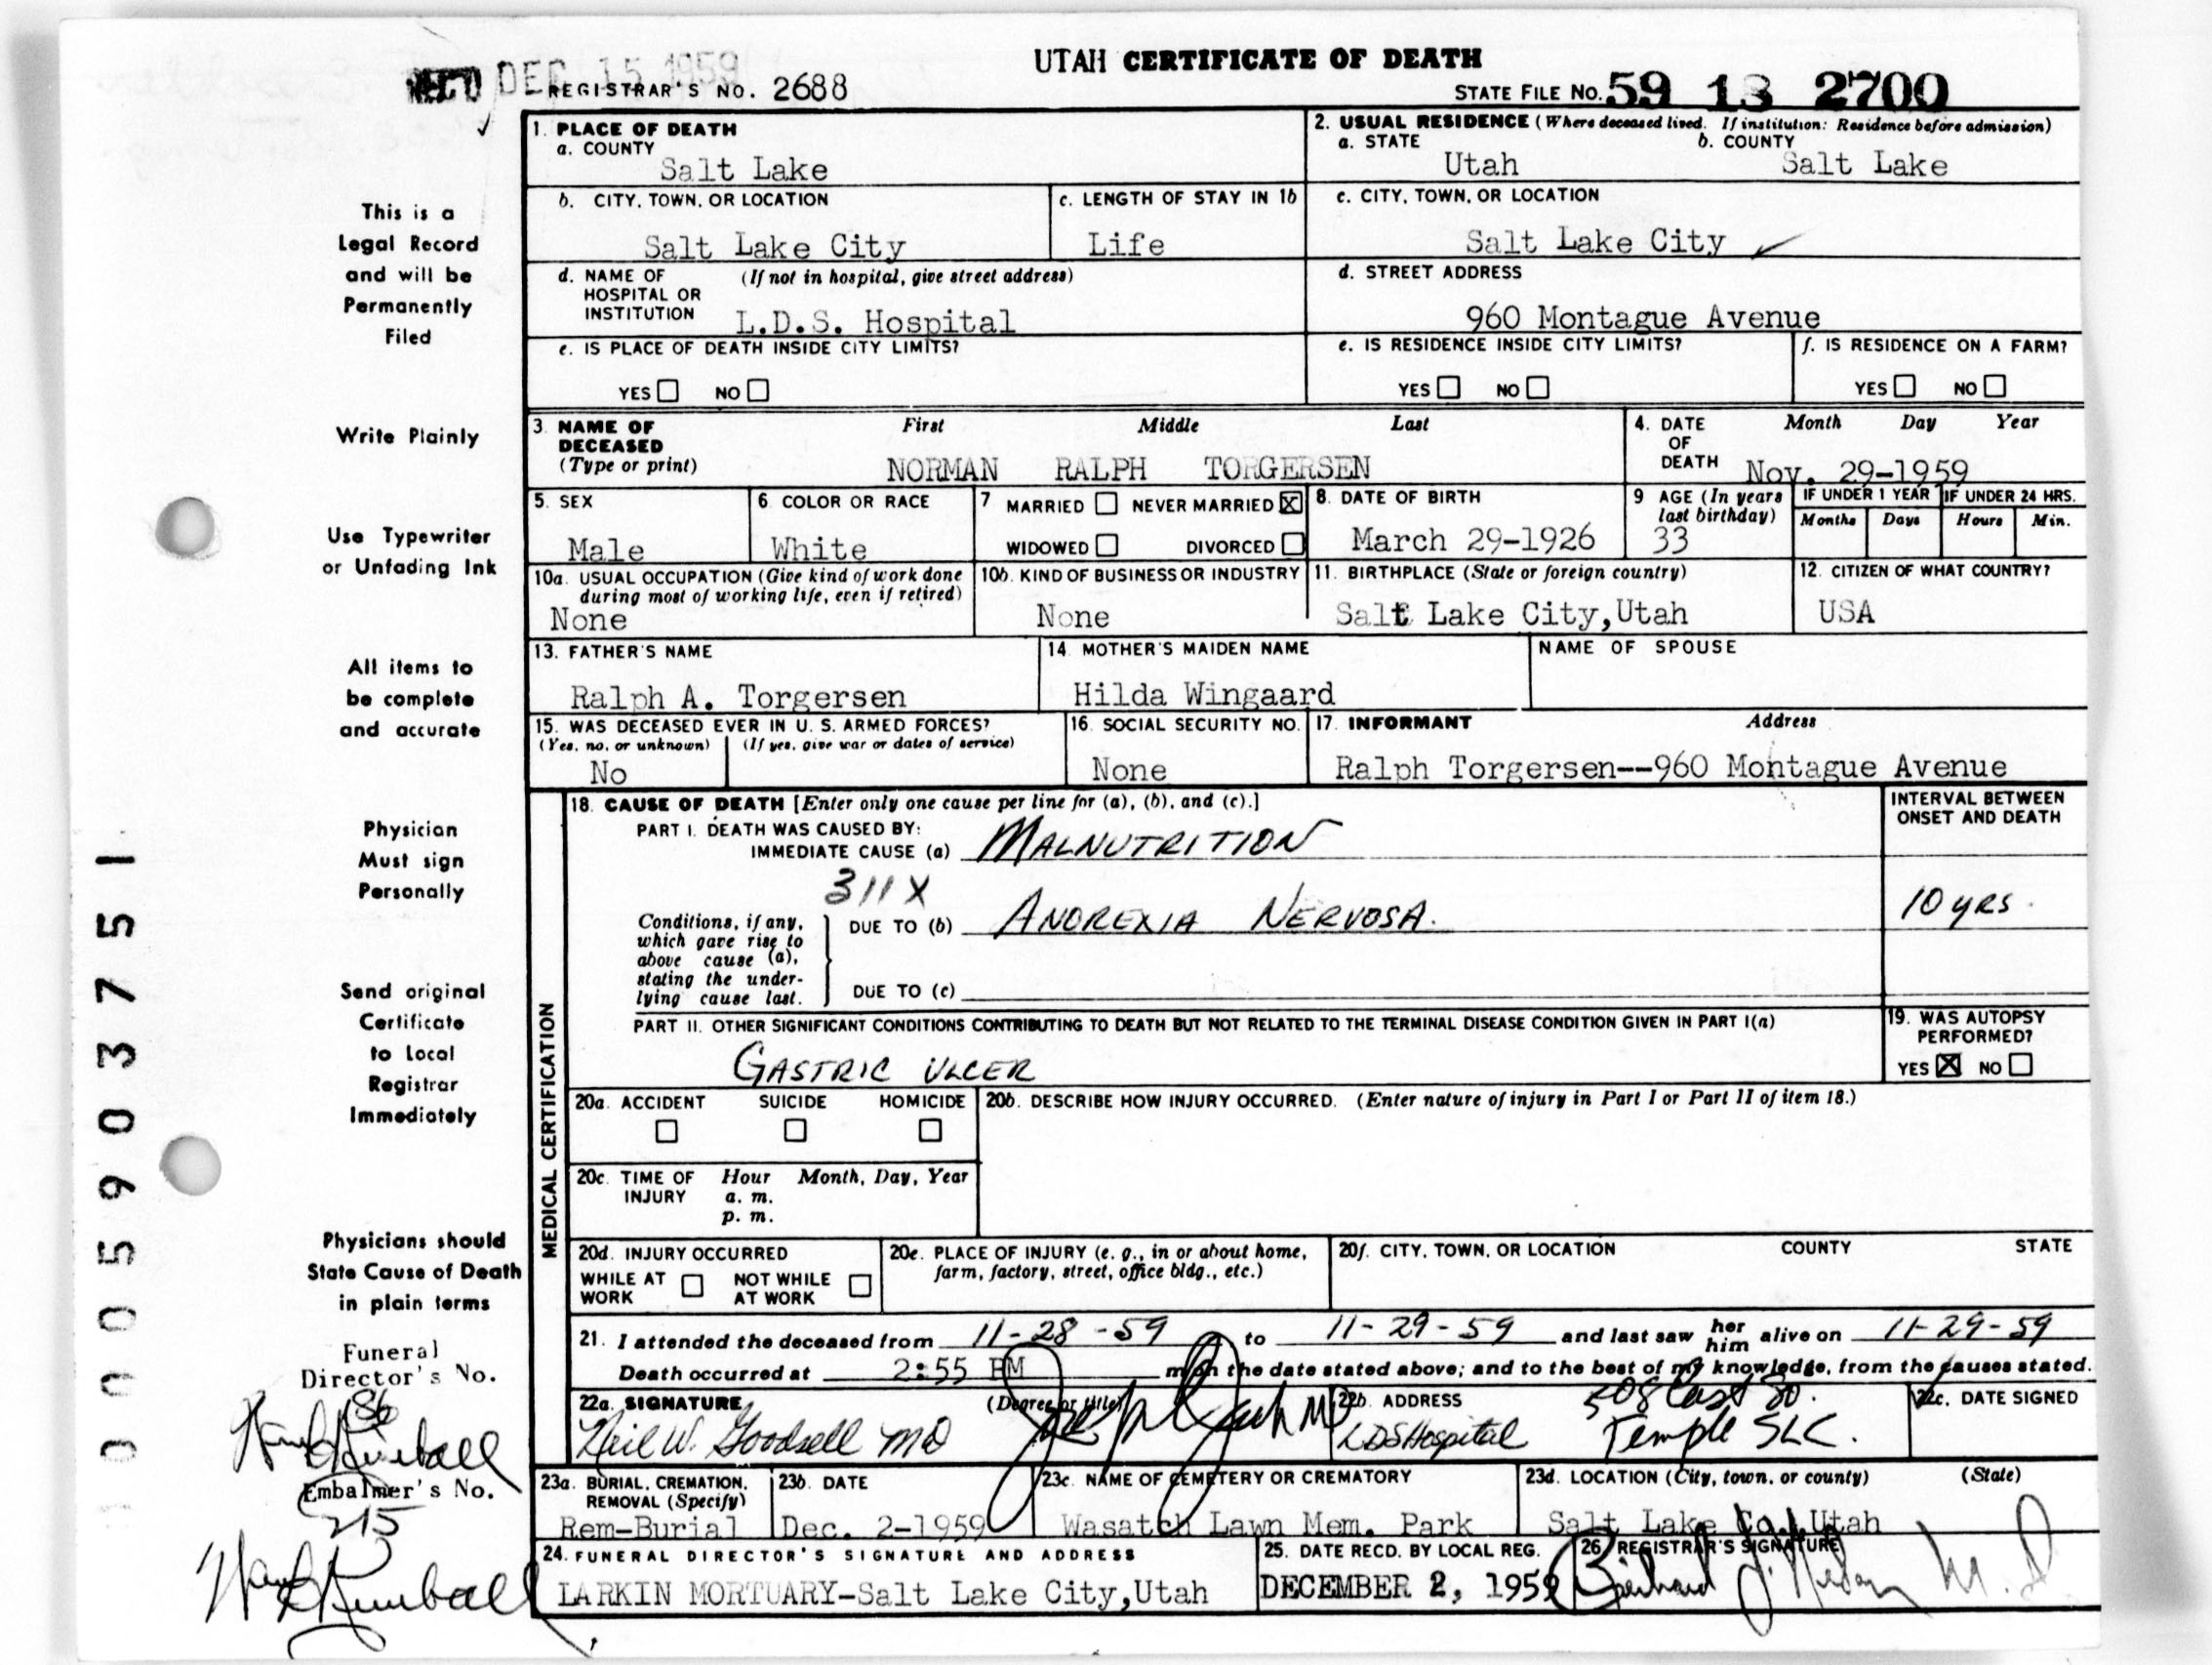 UTAH CERTIFICATE OF DEATH
REC'D DEC 15 1959
REGISTRAR'S NO. 2688
STATE FILE NO. 59 18 2700
1. PLACE OF DEATH
a. COUNTY
Salt Lake
2. USUAL RESIDENCE (Where deceased lived. If institution: Residence before admission)
a. STATE b. COUNTY
Utah Salt Lake
b. CITY, TOWN, OR LOCATION
Salt Lake City
c. LENGTH OF STAY IN 1b
Life
c. CITY, TOWN, OR LOCATION
Salt Lake City
d. NAME OF HOSPITAL OR INSTITUTION (If not in hospital, give street address)
L.D.S. Hospital
d. STREET ADDRESS
960 Montague Avenue
e. IS PLACE OF DEATH INSIDE CITY LIMITS?
YES NO
e. IS RESIDENCE INSIDE CITY LIMITS?
YES NO
f. IS RESIDENCE ON A FARM?
YES NO
3. NAME OF DECEASED (Type or print)
First Middle Last
NORMAN RALPH TORGERSEN
4. DATE OF DEATH
Month Day Year
Nov. 29-1959
5. SEX
Male
6. COLOR OR RACE
White
7 MARRIED NEVER MARRIED X
WIDOWED DIVORCED
8. DATE OF BIRTH
March 29-1926
9 AGE (In years last birthday)
33
IF UNDER 1 YEAR
Months Days
IF UNDER 24 HRS.
Hours Min.
10a. USUAL OCCUPATION (Give kind of work done during most of working life, even if retired)
None
10b. KIND OF BUSINESS OR INDUSTRY
None
11. BIRTHPLACE (State or foreign country)
Salt Lake City, Utah
12. CITIZEN OF WHAT COUNTRY?
USA
13. FATHER'S NAME
Ralph A. Torgersen
14. MOTHER'S MAIDEN NAME
Hilda Wingaard
NAME OF SPOUSE
15. WAS DECEASED EVER IN U. S. ARMED FORCES?
(Yes, no, or unknown) (If yes, give war or dates of service)
No
16. SOCIAL SECURITY NO.
None
17. INFORMANT Address
Ralph Torgersen--960 Montague Avenue
MEDICAL CERTIFICATION
18. CAUSE OF DEATH [Enter only one cause per line for (a), (b), and (c).]
PART I. DEATH WAS CAUSED BY:
IMMEDIATE CAUSE (a) MALNUTRITION
311X
Conditions, if any, which gave rise to above cause (a), stating the underlying cause last.
DUE TO (b) ANOREXIA NERVOSA.
DUE TO (c)
INTERVAL BETWEEN ONSET AND DEATH
10 yrs.
PART II. OTHER SIGNIFICANT CONDITIONS CONTRIBUTING TO DEATH BUT NOT RELATED TO THE TERMINAL DISEASE CONDITION GIVEN IN PART I(a)
GASTRIC ULCER
19. WAS AUTOPSY PERFORMED?
YES X NO
20a. ACCIDENT SUICIDE HOMICIDE
20b. DESCRIBE HOW INJURY OCCURRED. (Enter nature of injury in Part I or Part II of item 18.)
20c. TIME OF INJURY
Hour Month, Day, Year
a. m.
p. m.
20d. INJURY OCCURRED
WHILE AT WORK NOT WHILE AT WORK
20e. PLACE OF INJURY (e. g., in or about home, farm, factory, street, office bldg., etc.)
20f. CITY, TOWN, OR LOCATION COUNTY STATE
21. I attended the deceased from 11-28-59 to 11-29-59 and last saw her him alive on 11-29-59
Death occurred at 2:55 PM m on the date stated above; and to the best of my knowledge, from the causes stated.
22a. SIGNATURE (Degree or title)
Neil W. Goodsell MD
22b. ADDRESS
LDS Hospital
508 East So. Temple SLC.
22c. DATE SIGNED
23a. BURIAL, CREMATION, REMOVAL (Specify)
Rem-Burial
23b. DATE
Dec. 2-1959
23c. NAME OF CEMETERY OR CREMATORY
Wasatch Lawn Mem. Park
23d. LOCATION (City, town, or county) (State)
Salt Lake Co., Utah
24. FUNERAL DIRECTOR'S SIGNATURE AND ADDRESS
LARKIN MORTUARY-Salt Lake City, Utah
25. DATE RECD. BY LOCAL REG.
DECEMBER 2, 1959
26 REGISTRAR'S SIGNATURE
M.D
This is a
Legal Record
and will be
Permanently
Filed
Write Plainly
Use Typewriter
or Unfading Ink
All items to
be complete
and accurate
Physician
Must sign
Personally
Send original
Certificate
to Local
Registrar
Immediately
Physicians should
State Cause of Death
in plain terms
Funeral
Director's No.
86
Kimball
Embalmer's No.
215
Kimball
0005903751